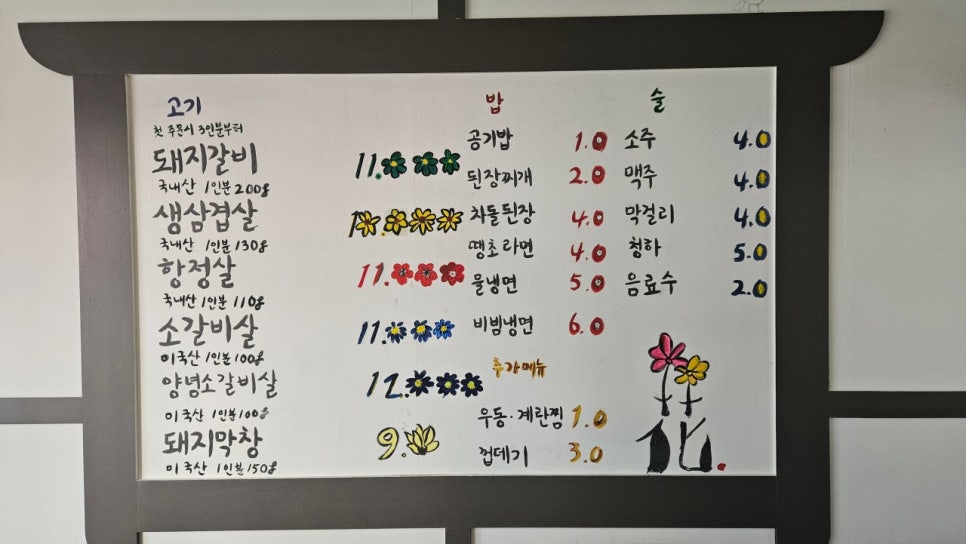 고기
첫 주문시 3인분부터
돼지갈비 11.
국내산 1인분 200g
생삼겹살 1
국내산 1인분 130g
항정살 11.
국내산 1인분 110g
소갈비살 11.
미국산 1인분 100g
양념소갈비살 12.
미국산 1인분 100g
돼지막창 9.
미국산 1인분 150g
밥
공기밥 1.0
된장찌개 2.0
차돌된장 4.0
땡초라면 4.0
물냉면 5.0
비빔냉면 6.0
추가메뉴
우동·계란찜 1.0
껍데기 3.0
술
소주 4.0
맥주 4.0
막걸리 4.0
청하 5.0
음료수 2.0
花.